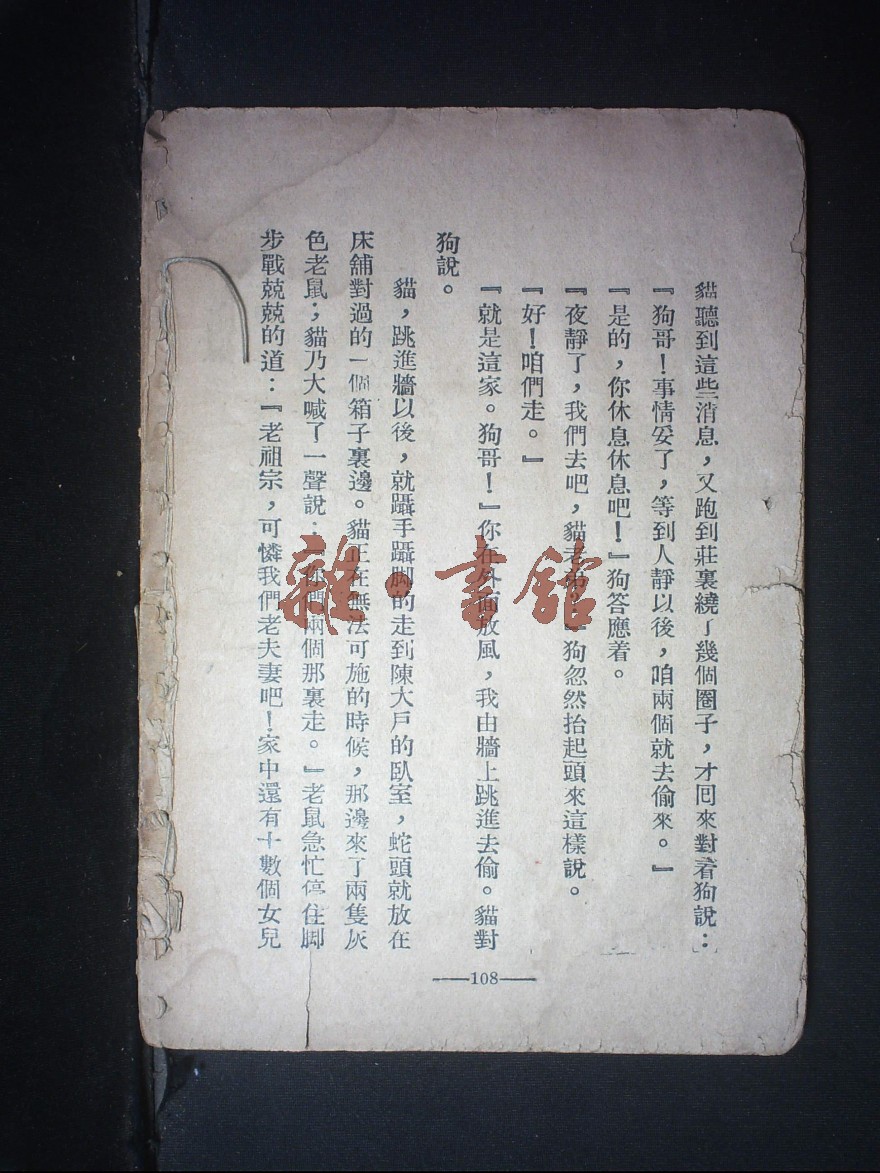 貓聽到這些消息，又跑到莊裏繞了幾個圈子，才回來對着狗說：
『狗哥！事情妥了，等到人靜以後，咱兩個就去偷來。』
『是的，你休息休息吧！』狗答應着。
『夜靜了，我們去吧，貓老弟！』狗忽然抬起頭來這樣說。
『好！咱們走。』
『就是這家。狗哥！』你在外面放風，我由牆上跳進去偷。貓對
狗說。
貓，跳進牆以後，就躡手躡脚的走到陳大戶的臥室，蛇頭就放在
床舖對過的一個箱子裏邊。貓正在無法可施的時候，那邊來了兩隻灰
色老鼠；貓乃大喊了一聲說：『你們兩個那裏走。』老鼠急忙停住脚
步戰兢兢的道：『老祖宗，可憐我們老夫妻吧！家中還有十數個女兒
——108——
雜·書館